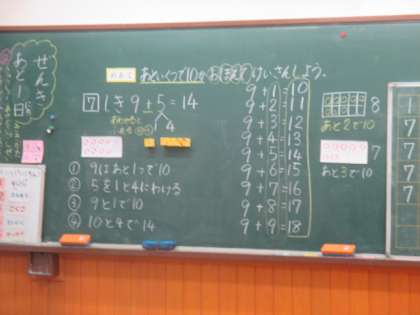 ぜんき
あと1日
めあて
あといくつで10かおぼえてけいさんしよう。
7 しき 9+5=14
1 4
① 9はあと1つで10
② 5を1と4にわける
③ 9と1で10
④ 10と4で14
9+1=10
9+2=11
9+3=12
9+4=13
9+5=14
9+6=15
9+7=16
9+8=17
9+9=18
8
あと2で10
7
あと3で10
7
7
7
7
7